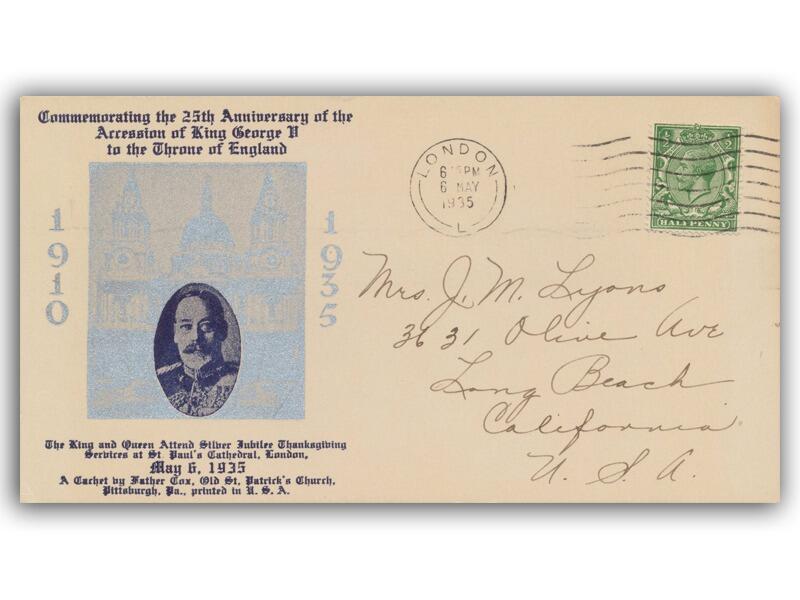 Commemorating the 25th Anniversary of the
Accession of King George V
to the Throne of England
1910
1935
The King and Queen Attend Silver Jubilee Thanksgiving
Services at St. Paul's Cathedral, London,
May 6, 1935
A Cachet by Father Cox, Old St. Patrick's Church,
Pittsburgh, Pa., printed in U. S. A.
LONDON
PM
6 MAY
1935
L
HALFPENNY
Mrs. J. M. Lyons
3631 Olive Ave
Long Beach
California
U. S. A.